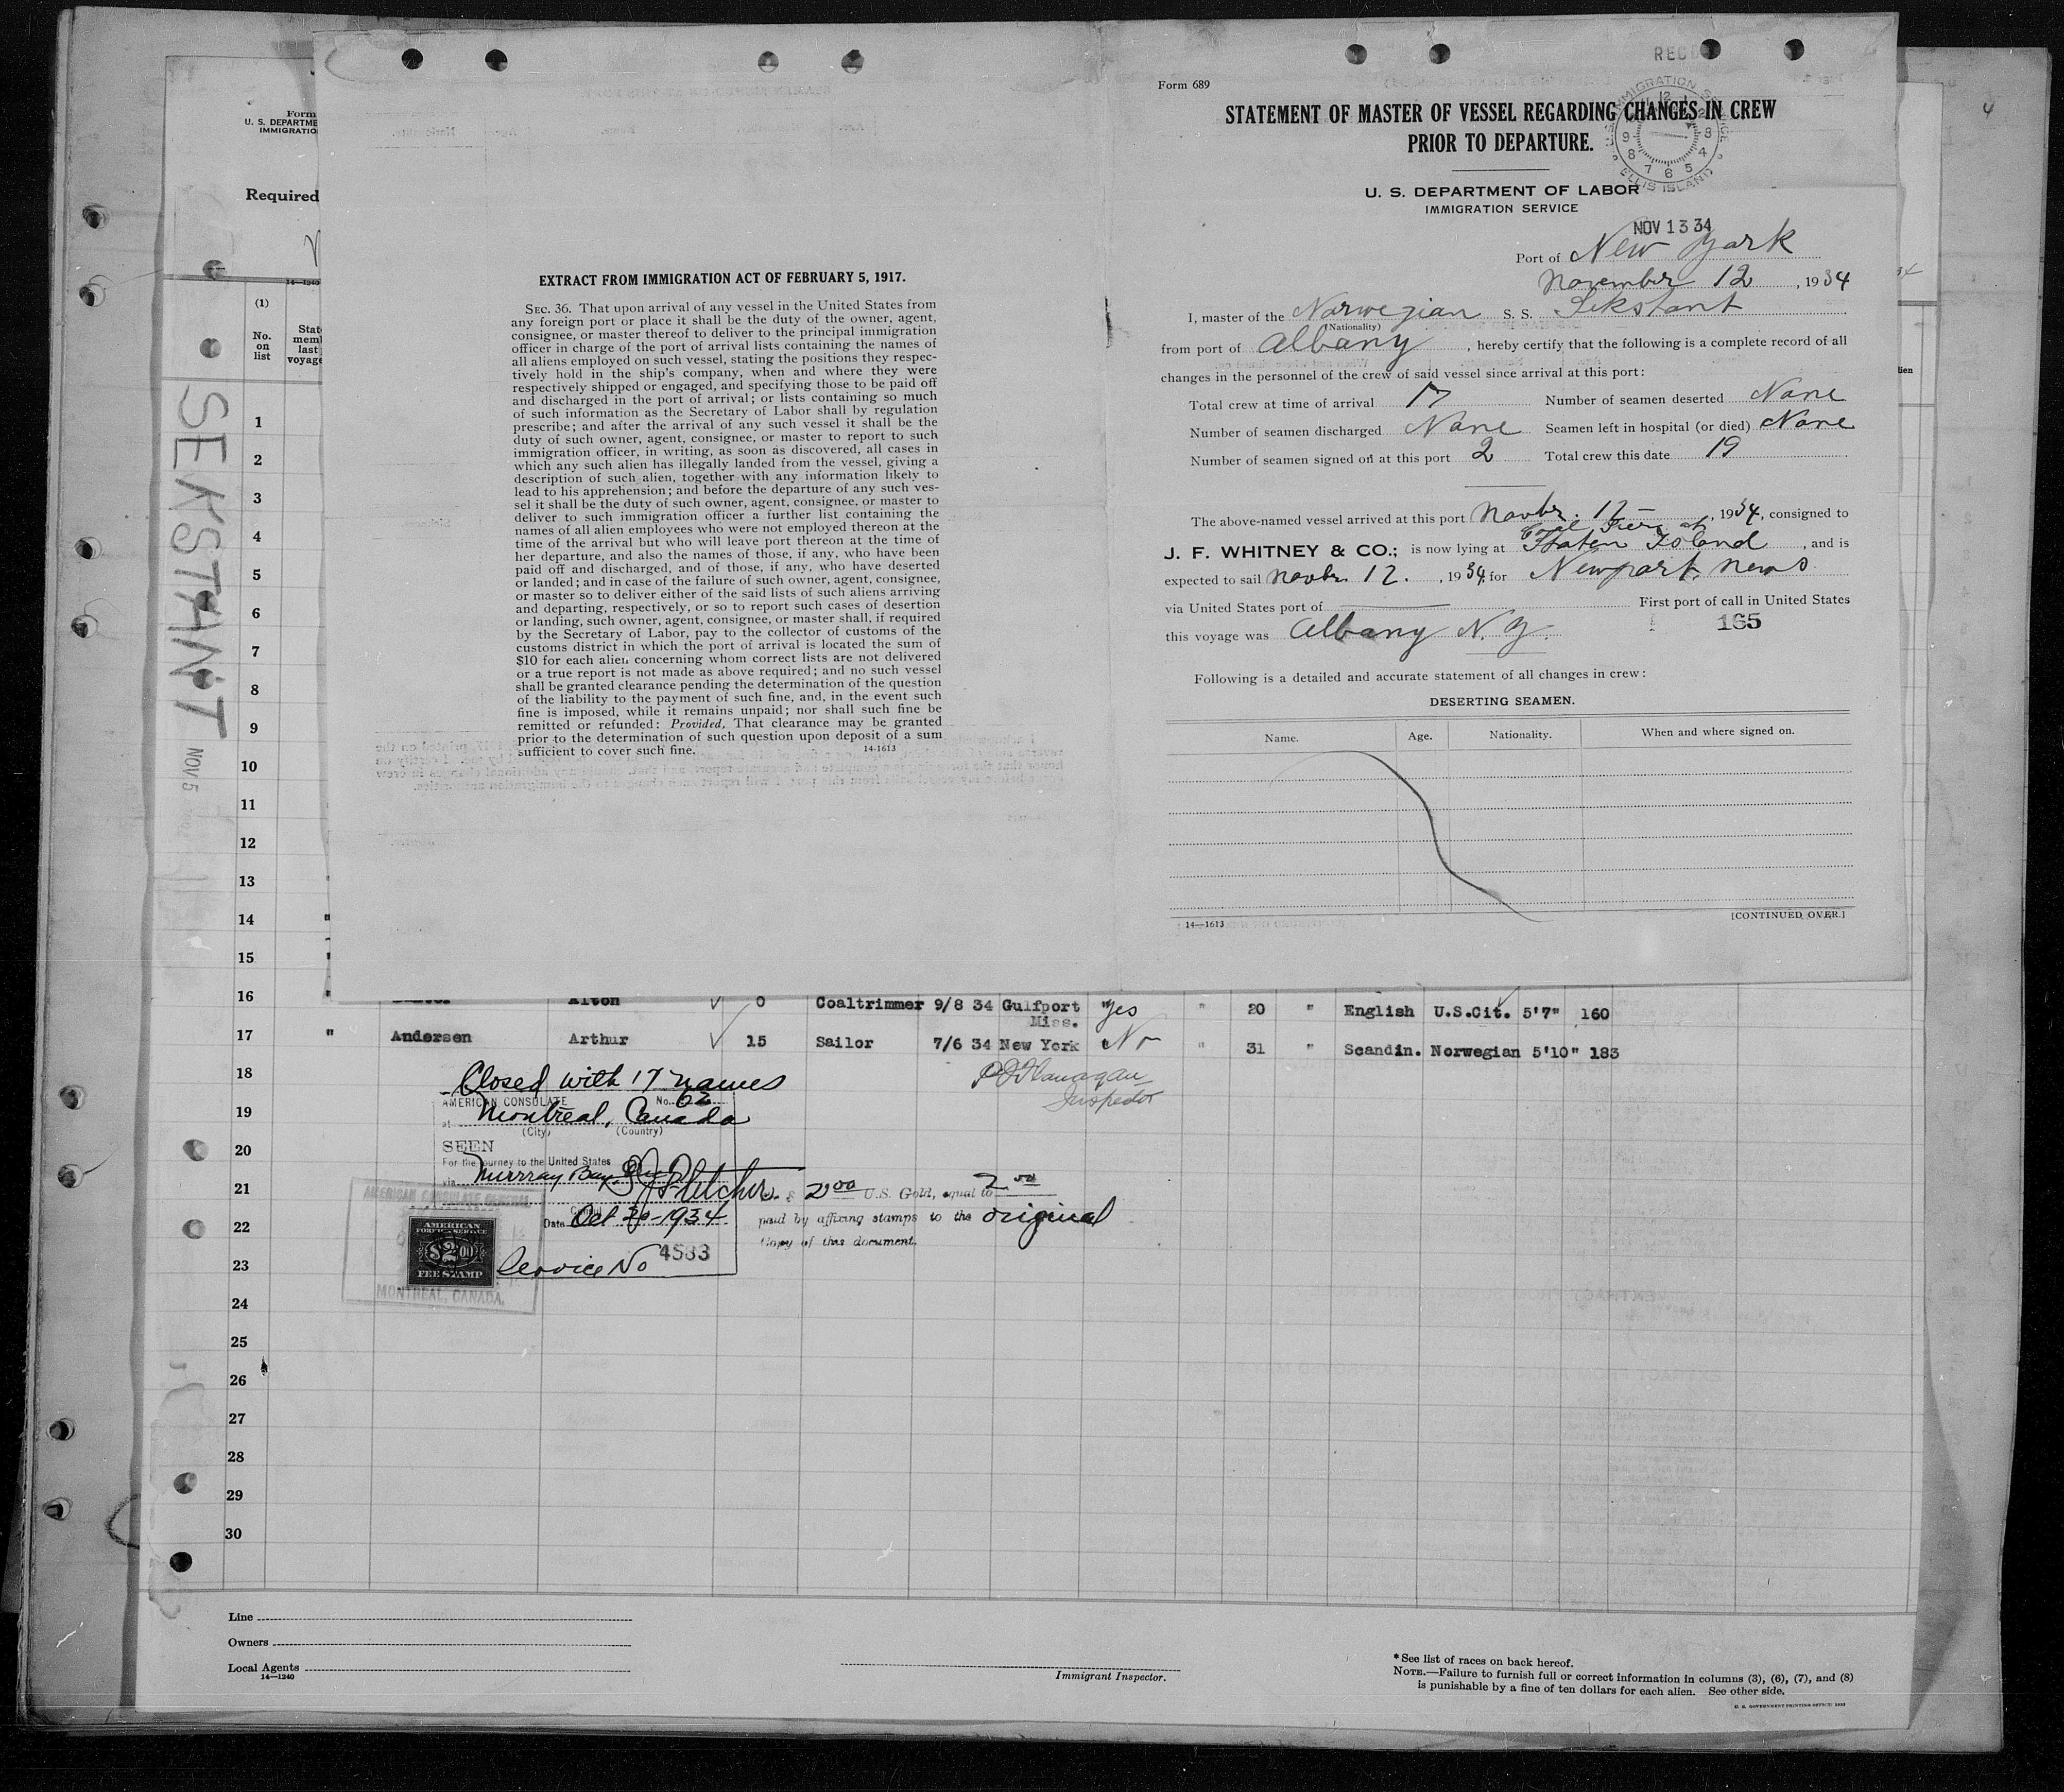 Form
U. S. DEPARTME
IMMIGRATIO
Required
14—1240
(1)
No.
on
list
State
memb
last
voyage
SEKSTANT
NOV 5
1
2
3
4
5
6
7
8
9
10
11
12
13
14 "
15 "
EXTRACT FROM IMMIGRATION ACT OF FEBRUARY 5, 1917.
SEC. 36. That upon arrival of any vessel in the United States from
any foreign port or place it shall be the duty of the owner, agent,
consignee, or master thereof to deliver to the principal immigration
officer in charge of the port of arrival lists containing the names of
all aliens employed on such vessel, stating the positions they respec-
tively hold in the ship's company, when and where they were
respectively shipped or engaged, and specifying those to be paid off
and discharged in the port of arrival; or lists containing so much
of such information as the Secretary of Labor shall by regulation
prescribe; and after the arrival of any such vessel it shall be the
duty of such owner, agent, consignee, or master to report to such
immigration officer, in writing, as soon as discovered, all cases in
which any such alien has illegally landed from the vessel, giving a
description of such alien, together with any information likely to
lead to his apprehension; and before the departure of any such ves-
sel it shall be the duty of such owner, agent, consignee, or master to
deliver to such immigration officer a further list containing the
names of all alien employees who were not employed thereon at the
time of the arrival but who will leave port thereon at the time of
her departure, and also the names of those, if any, who have been
paid off and discharged, and of those, if any, who have deserted
or landed; and in case of the failure of such owner, agent, consignee,
or master so to deliver either of the said lists of such aliens arriving
and departing, respectively, or so to report such cases of desertion
or landing, such owner, agent, consignee, or master shall, if required
by the Secretary of Labor, pay to the collector of customs of the
customs district in which the port of arrival is located the sum of
$10 for each alien concerning whom correct lists are not delivered
or a true report is not made as above required; and no such vessel
shall be granted clearance pending the determination of the question
of the liability to the payment of such fine, and, in the event such
fine is imposed, while it remains unpaid; nor shall such fine be
remitted or refunded: Provided, That clearance may be granted
prior to the determination of such question upon deposit of a sum
sufficient to cover such fine. 14-1613
Form 689
STATEMENT OF MASTER OF VESSEL REGARDING CHANGES IN CREW
PRIOR TO DEPARTURE.
IMMIGRATION SERVICE
ELLIS ISLAND
U. S. DEPARTMENT OF LABOR
IMMIGRATION SERVICE
NOV 13 34
Port of New York
November 12, 1934
I, master of the Norwegian S. S. Sekstant
(Nationality)
from port of Albany, hereby certify that the following is a complete record of all
changes in the personnel of the crew of said vessel since arrival at this port:
Total crew at time of arrival 17 Number of seamen deserted None
Number of seamen discharged None Seamen left in hospital (or died) None
Number of seamen signed on at this port 2 Total crew this date 19
The above-named vessel arrived at this port Novbr. 12, 1934, consigned to
J. F. WHITNEY & CO.; is now lying at Coal Pier at Staten Island, and is
expected to sail Novbr. 12., 1934 for Newport News
via United States port of First port of call in United States
this voyage was Albany N. Y. 165
Following is a detailed and accurate statement of all changes in crew:
DESERTING SEAMEN.
Name. Age. Nationality. When and where signed on.
14—1613 [CONTINUED OVER.]
4
lien
16 " Alton 0 Coaltrimmer 9/8 34 Gulfport Miss. " Yes " 20 " English U.S.Cit. 5'7" 160
17 " Andersen Arthur 15 Sailor 7/6 34 New York No " 31 " Scandin. Norwegian 5'10" 183
18
Closed with 17 names
P J Flanagan
Inspector
19
AMERICAN CONSULATE No. 62
at Montreal, Canada
(City) (Country)
20
SEEN
For the journey to the United States
via Murray Bay
21
Fletcher
$ 2.00 U.S. Gold, equal to 2.00
22
Date Oct 30-1934
paid by affixing stamps to the original
Copy of this document.
23
Service No 4583
AMERICAN CONSULATE GENERAL
AMERICAN
FOREIGN SERVICE
$2.00
FEE STAMP
MONTREAL, CANADA.
24
25
26
27
28
29
30
Line
Owners
Local Agents
14—1240
Immigrant Inspector.
* See list of races on back hereof.
NOTE.—Failure to furnish full or correct information in columns (3), (6), (7), and (8)
is punishable by a fine of ten dollars for each alien. See other side.
U. S. GOVERNMENT PRINTING OFFICE: 1933